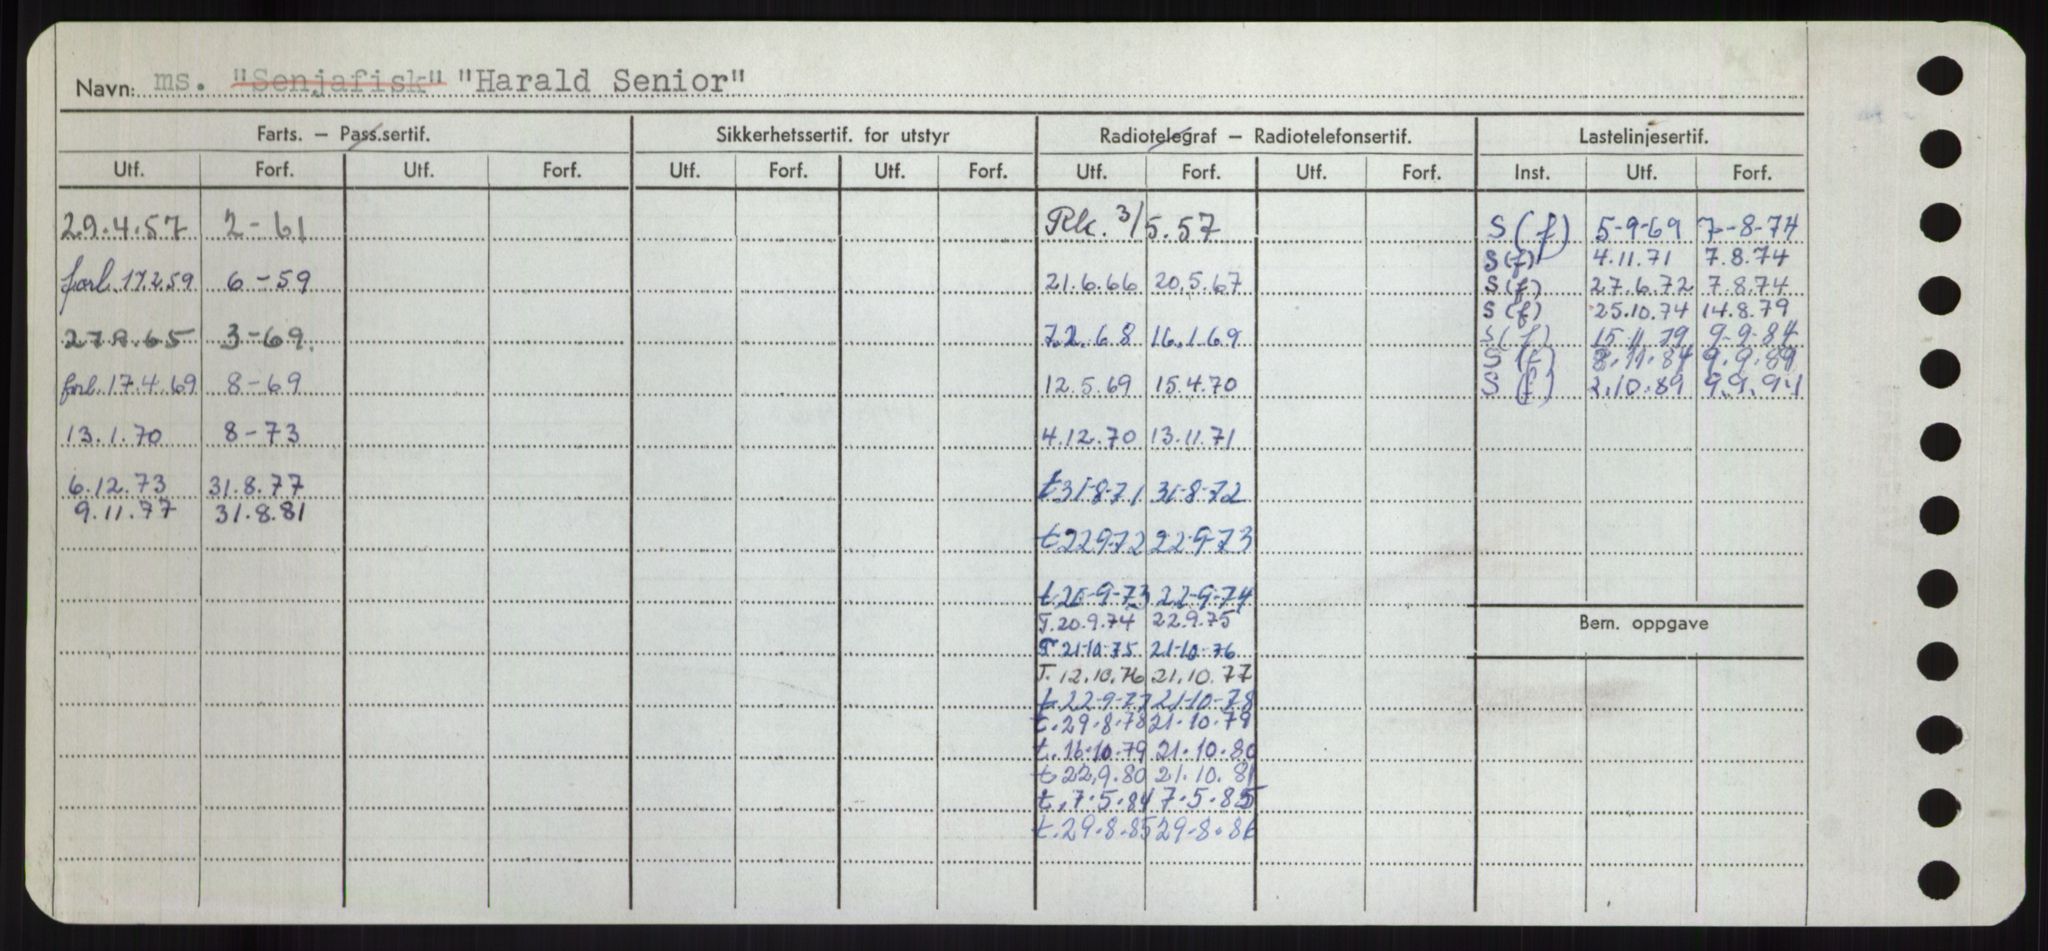 Navn: ms. "Senjafisk" "Harald Senior"
Farts. — Pass.sertif. Sikkerhetssertif. for utstyr Radiotelegraf — Radiotelefonsertif. Lastelinjesertif.
Utf. Forf. Utf. Forf. Utf. Forf. Utf. Forf. Utf. Forf. Utf. Forf. Inst. Utf. Forf.
29.4.57 2-61 Rk. 3/5.57 S (f) 5-9-69 7-8-74
S (f) 4.11.71 7.8.74
forl. 17.2.59 6-59 21.6.66 20.5.67 S (f) 27.6.72 7.8.74
S (f) 25.10.74 14.8.79
27.9.65 3-69. 7.2.68 16.1.69 S (f) 15.11.79 9-9-84
S (f) 8.11.84 9.9.89
forl. 17.4.69 8-69 12.5.69 15.4.70 S (f) 2.10.89 9.9.94
13.1.70 8-73 4.12.70 13.11.71
6.12.73 31.8.77 t 31-8-71 31-8-72
9.11.77 31.8.81
t 22972 22-9-73
t. 20-9-73 22-9-74
T. 20.9.74 22.9.75
Bem. oppgave
T 21-10-75 21-10-76
T. 12.10.76 21.10.77
t. 22-9-77 21-10-78
t. 29.8.78 21.10.79
t. 16.10.79 21.10.80
t 22.9.80 21.10.81
t. 7.5.84 7.5.85
t. 29-8-85 29-8-86